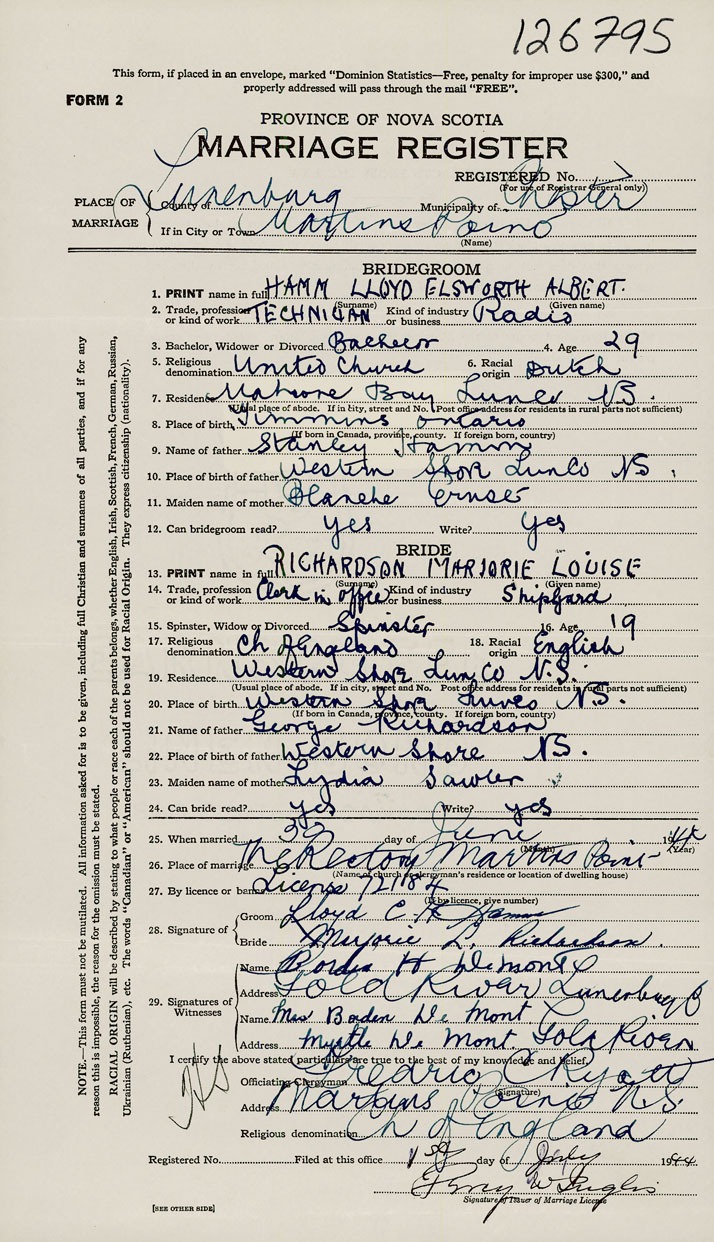 126795
This form, if placed in an envelope, marked "Dominion Statistics—Free, penalty for improper use $300," and
properly addressed will pass through the mail "FREE".
FORM 2
PROVINCE OF NOVA SCOTIA
MARRIAGE REGISTER
REGISTERED No.
(For use of Registrar General only)
PLACE OF MARRIAGE
County of Lunenburg Municipality of Chester
If in City or Town Martins Point
(Name)
BRIDEGROOM
1. PRINT name in full HAMM LLOYD ELSWORTH ALBERT.
(Surname) (Given name)
2. Trade, profession or kind of work TECHNICIAN Kind of industry or business Radio
3. Bachelor, Widower or Divorced Bachelor 4. Age 29
5. Religious denomination United Church 6. Racial origin Dutch
7. Residence Mahone Bay Lunco N.S.
(Usual place of abode. If in city, street and No. Post office address for residents in rural parts not sufficient)
8. Place of birth Timmins Ontario
(If born in Canada, province, county. If foreign born, country)
9. Name of father Stanley Hamm
10. Place of birth of father Western Shore LunCo NS.
11. Maiden name of mother Blanche Ernst
12. Can bridegroom read? yes Write? yes
BRIDE
13. PRINT name in full RICHARDSON MARJORIE LOUISE
(Surname) (Given name)
14. Trade, profession or kind of work Clerk in office Kind of industry or business Shipyard
15. Spinster, Widow or Divorced Spinster 16. Age 19
17. Religious denomination Ch of England 18. Racial origin English
19. Residence Western Shore Lun Co N.S.
(Usual place of abode. If in city, street and No. Post office address for residents in rural parts not sufficient)
20. Place of birth Western Shore N.S.
(If born in Canada, province, county. If foreign born, country)
21. Name of father George Richardson
22. Place of birth of father Western Shore NS.
23. Maiden name of mother Lydia Sawler
24. Can bride read? yes Write? yes
25. When married day of June 1944
(Month) (Year)
26. Place of marriage The Rectory Martins Point
(Name of church or clergyman's residence or location of dwelling house)
27. By licence or banns License 72184
(If by licence, give number)
28. Signature of
Groom Lloyd E. A. Hamm
Bride Marjorie L. Richardson.
29. Signatures of Witnesses
Name Borden H DeMont
Address Gold River Lunenburg
Name Mrs Borden De Mont
Address Myrtle De Mont. Gold River
I certify the above stated particulars are true to the best of my knowledge and belief.
Officiating Clergyman Fredric
(Signature)
Address Martins Point N.S.
Religious denomination Ch of England
Registered No. Filed at this office 1st day of July 1944
Signature of Issuer of Marriage License
[SEE OTHER SIDE]
NOTE.—This form must not be mutilated. All information asked for is to be given, including full Christian and surnames of all parties, and if for any
reason this is impossible, the reason for the omission must be stated.
RACIAL ORIGIN will be described by stating to what people or race each of the parents belongs, whether English, Irish, Scottish, French, German, Russian,
Ukrainian (Ruthenian), etc. The words "Canadian" or "American" should not be used for Racial Origin. They express citizenship (nationality).